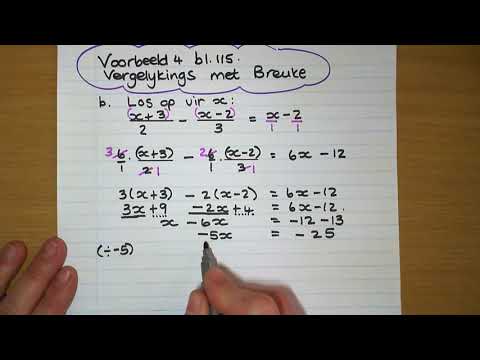 Voorbeeld 4 bl. 115.
Vergelykings met Breuke
b. Los op vir x:
(x + 3)/2 - (x - 2)/3 = x/1 - 2/1
3 6/1 . (x+3)/2 1 - 2 6/1 . (x-2)/3 1 = 6x - 12
3(x+3) - 2(x-2) = 6x - 12
3x + 9 - 2x + 4 = 6x - 12.
x - 6x = -12 - 13
(÷ -5) -5x = -25